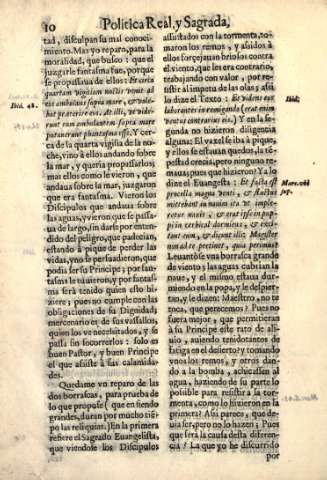 10
Politica Real, y Sagrada,
tad, disculpan su mal conoci-
miento. Mas yo reparo, para la
moralidad, que busco: que el
juzgarle fantasma fue, porque
se propassaua de ellos: Et circa
quartam vigiliam noctis venit ad
eos ambulans supra mare, & vole-
bat præterire eos. At illi, vt vide-
runt eum ambulantem supra mare
putauerunt phantasma esse. Y cer-
ca de la quarta vigilia de la no-
che, vino à ellos andando sobre
la mar, y queria propassarlos;
mas ellos como le vieron, que
andaua sobre la mar, juzgaron
que era fantasma. Vieron los
Discipulos que andaua sobre
las aguas, y vieron que se passa-
ua de largo, sin darse por enten-
dido del peligro, que padecian,
estando à pique de perder las
vidas, y no se persuadieron, que
podia ser su Principe; por fan-
tasma le tuuieron, y por fantas-
ma serà tenido quien esto hi-
ziere; pues no cumple con las
obligaciones de su Dignidad,
mercenario es de sus vassallos,
quien los ve necessitados, y se
passa sin socorrerlos: solo es
buen Pastor, y buen Principe
el que assiste à las calamida-
des.
Quedame vn reparo de las
dos borrascas, para prueba de
lo que propuse (que en siendo
grandes, duran por mucho tiē-
po las reliquias.) En la primera
refiere el Sagrado Euangelista,
que viendose los Discipulos
Ibid. 48.
assustados con la tormenta, to-
maron los remos, y asidos à
ellos forcejauan briosos contra
el viento, que les era contrario,
trabajando con valor, por re-
sistir al impetu de las olas; assi
lo dize el Texto: Et videns eos
laborantes in remigando (erat enim
ventus contrarius eis.) Y en la se-
gunda no hizieron diligencia
alguna; El vaxel se iba à pique,
y ellos se estauan quedos, la tē-
pestad crecia, pero ninguno re-
maua; pues que hizieron? Ya lo
dize el Euangelista: Et facta est
procella magna venti, & fluctus
mittebat in nauim ita vt imple-
retur nauis, & erat ipse in pup-
pi super cervical dormiens, & exci-
tant eum, & dicunt illi: Magister
non ad te pertinet, quia perimus?
Leuantòse vna borrasca grande
de viento; las aguas cubrian la
naue, y el mismo estaua dur-
miendo en la popa, y le despier-
tan, y le dizen: Maestro, no te
toca, que perecemos? Pues no
fuera mejor, que permitieran
à su Principe este rato de ali-
uio, auiendo tenido tantos de
fatiga en el desierto; y tomando
vnos los remos, y otros dan-
do à la bomba, achicassen al
agua, haziendo de su parte lo
possible para resistir à la tor-
menta, como lo hizieron en la
primera? Assi parece, que de-
uia ser, pero no lo hazen; Pues
que serà la causa desta diferen-
cia? La que yo he discurrido
Ibid.
por